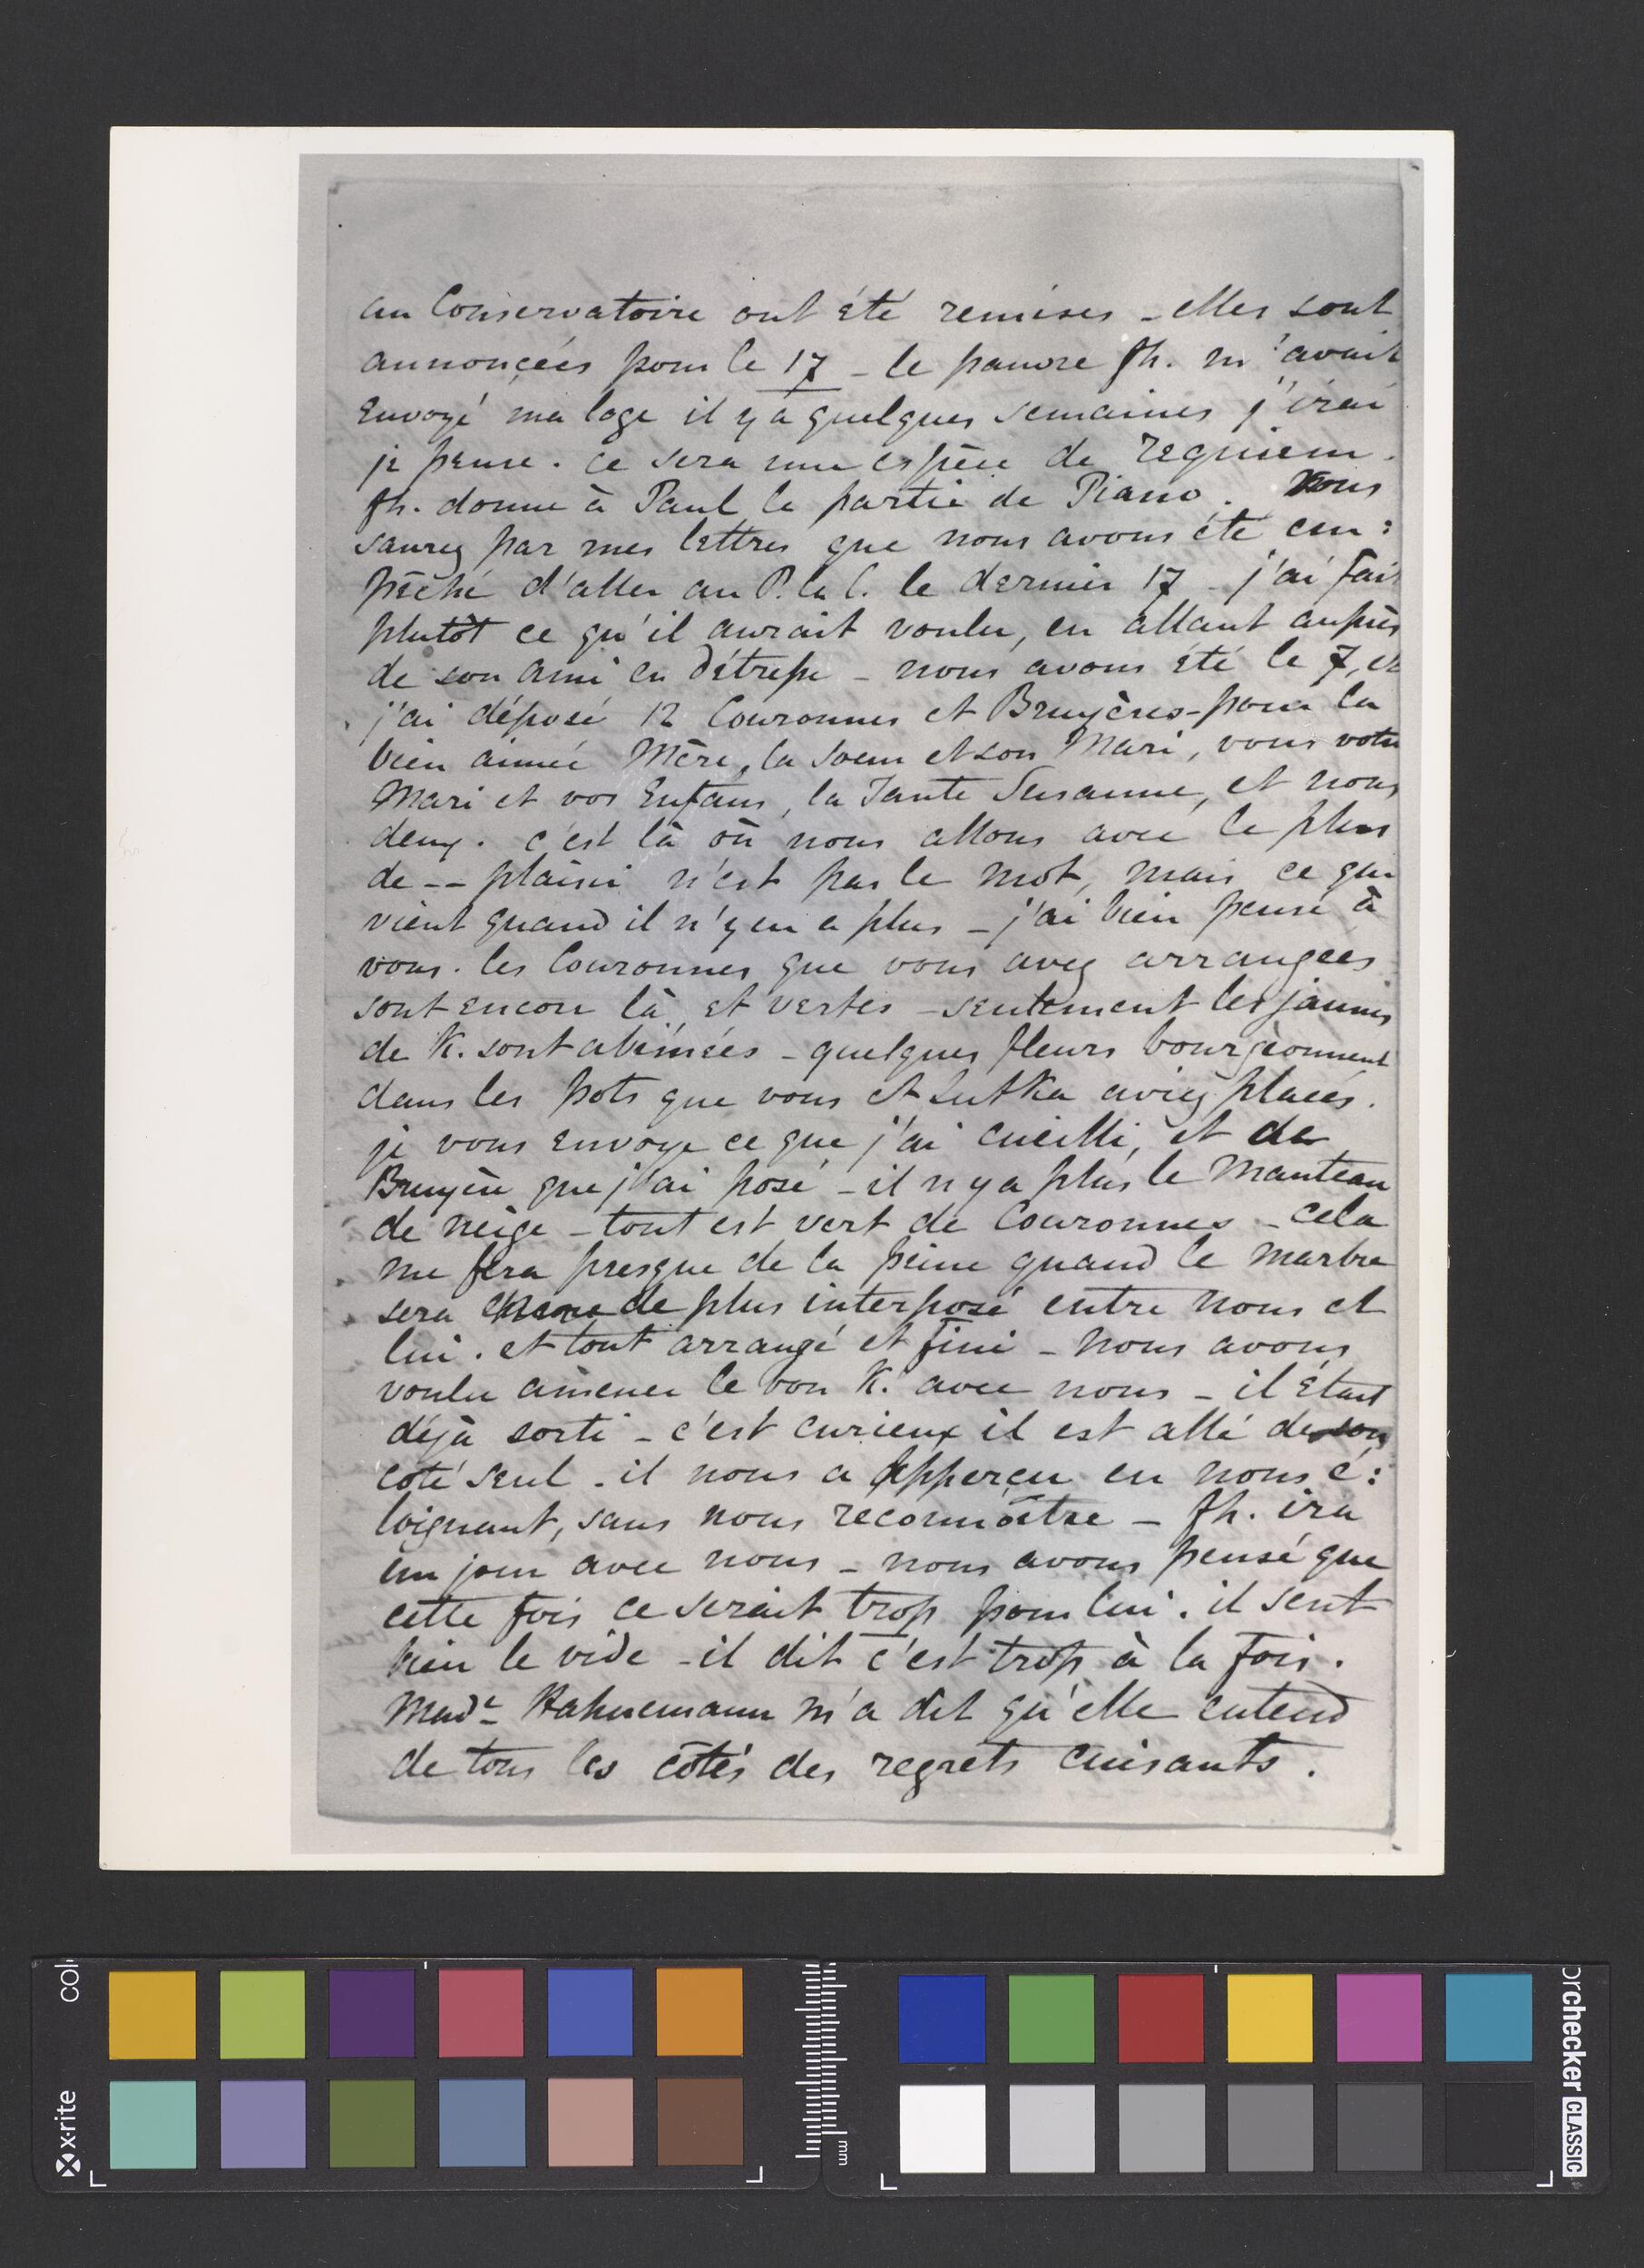 au Conservatoire ont été remises - elles sont
annoncées pour le 17 - le pauvre fh. m'avait
Envoyé ma loge il y a quelques semaines j'irai
je pense. ce sera une espèce de requiem.
fh. donne à Paul la partie de Piano. Vous
saurez par mes lettres que nous avons été em:
pêché d'aller au P. la C. le dernier 17 - j'ai fait
plutôt ce qu'il aurait voulu, en allant auprès
de son ami en détresse - nous avons été le 7, et
j'ai déposé 12 Couronnes et Bruyères - pour la
bien aimée Mère, la soeur et son Mari, vous votre
Mari et vos Enfans, la Tante Susanne, et nous
deux. c'est là où nous allons avec le plus
de -- plaisir n'est pas le mot, mais ce qui
vient quand il n'y en a plus - j'ai bien pensé à
vous. les Couronnes que vous avez arrangées
sont encore là et vertes - seulement les jaunes
de K. sont abimées - quelques fleurs bourgeonnent
dans les pots que vous et Lutka aviez placés.
je vous envoye ce que j'ai cueilli, et de
Bruyère que j'ai posé - il n'y a plus le Manteau
de neige - tout est vert de Couronnes - cela
me fera presque de la peine quand le marbre
sera de plus interposé entre nous et
lui. et tout arrangé et fini - nous avons
voulu amener le bon K. avec nous - il était
déjà sorti - c'est curieux il est allé de son
coté seul. il nous a apperçu en nous é:
loignant, sans nous reconnoître - fh. ira
un jour avec nous - nous avons pensé que
cette fois ce serait trop pour lui. il sent
bien le vide - il dit c'est trop à la fois.
Made Hahnemann m'a dit qu'elle entend
de tous les côtés des regrets cuisants.
x-rite
col
mm
orchecker CLASSIC